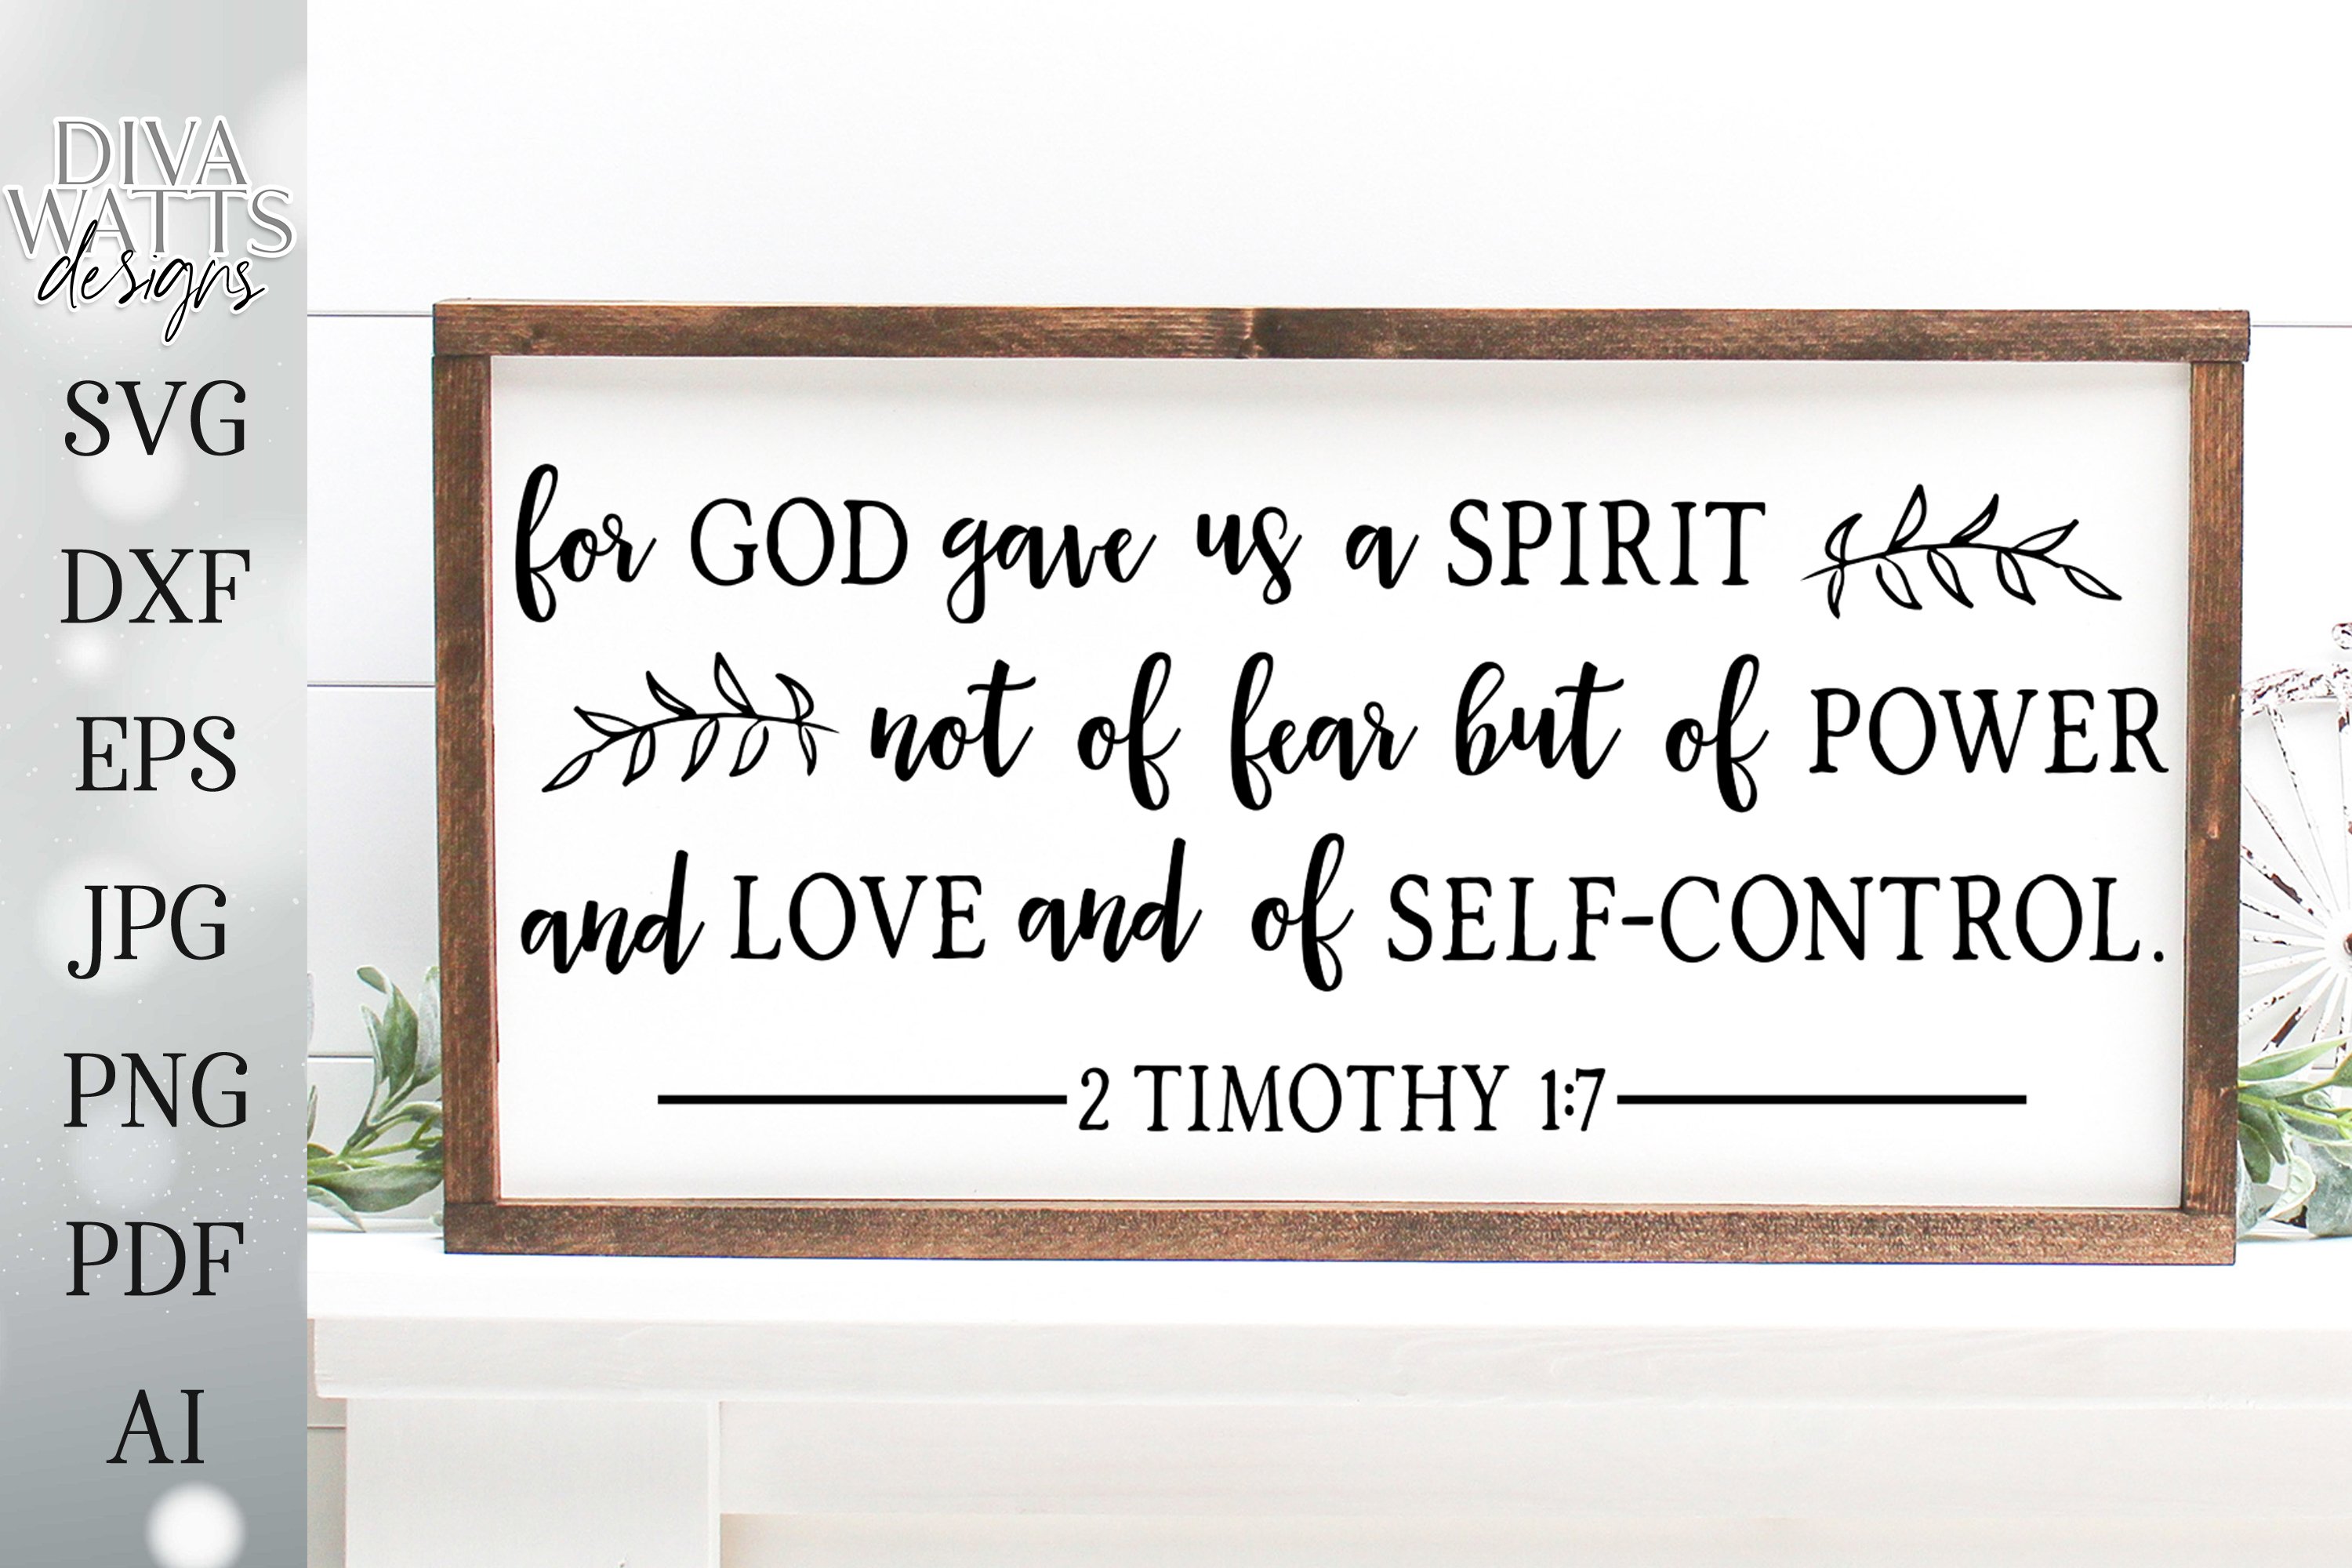 DIVA
WATTS
designs
SVG
DXF
EPS
JPG
PNG
PDF
AI
for GOD gave us a SPIRIT
not of fear but of POWER
and LOVE and of SELF-CONTROL.
2 TIMOTHY 1:7